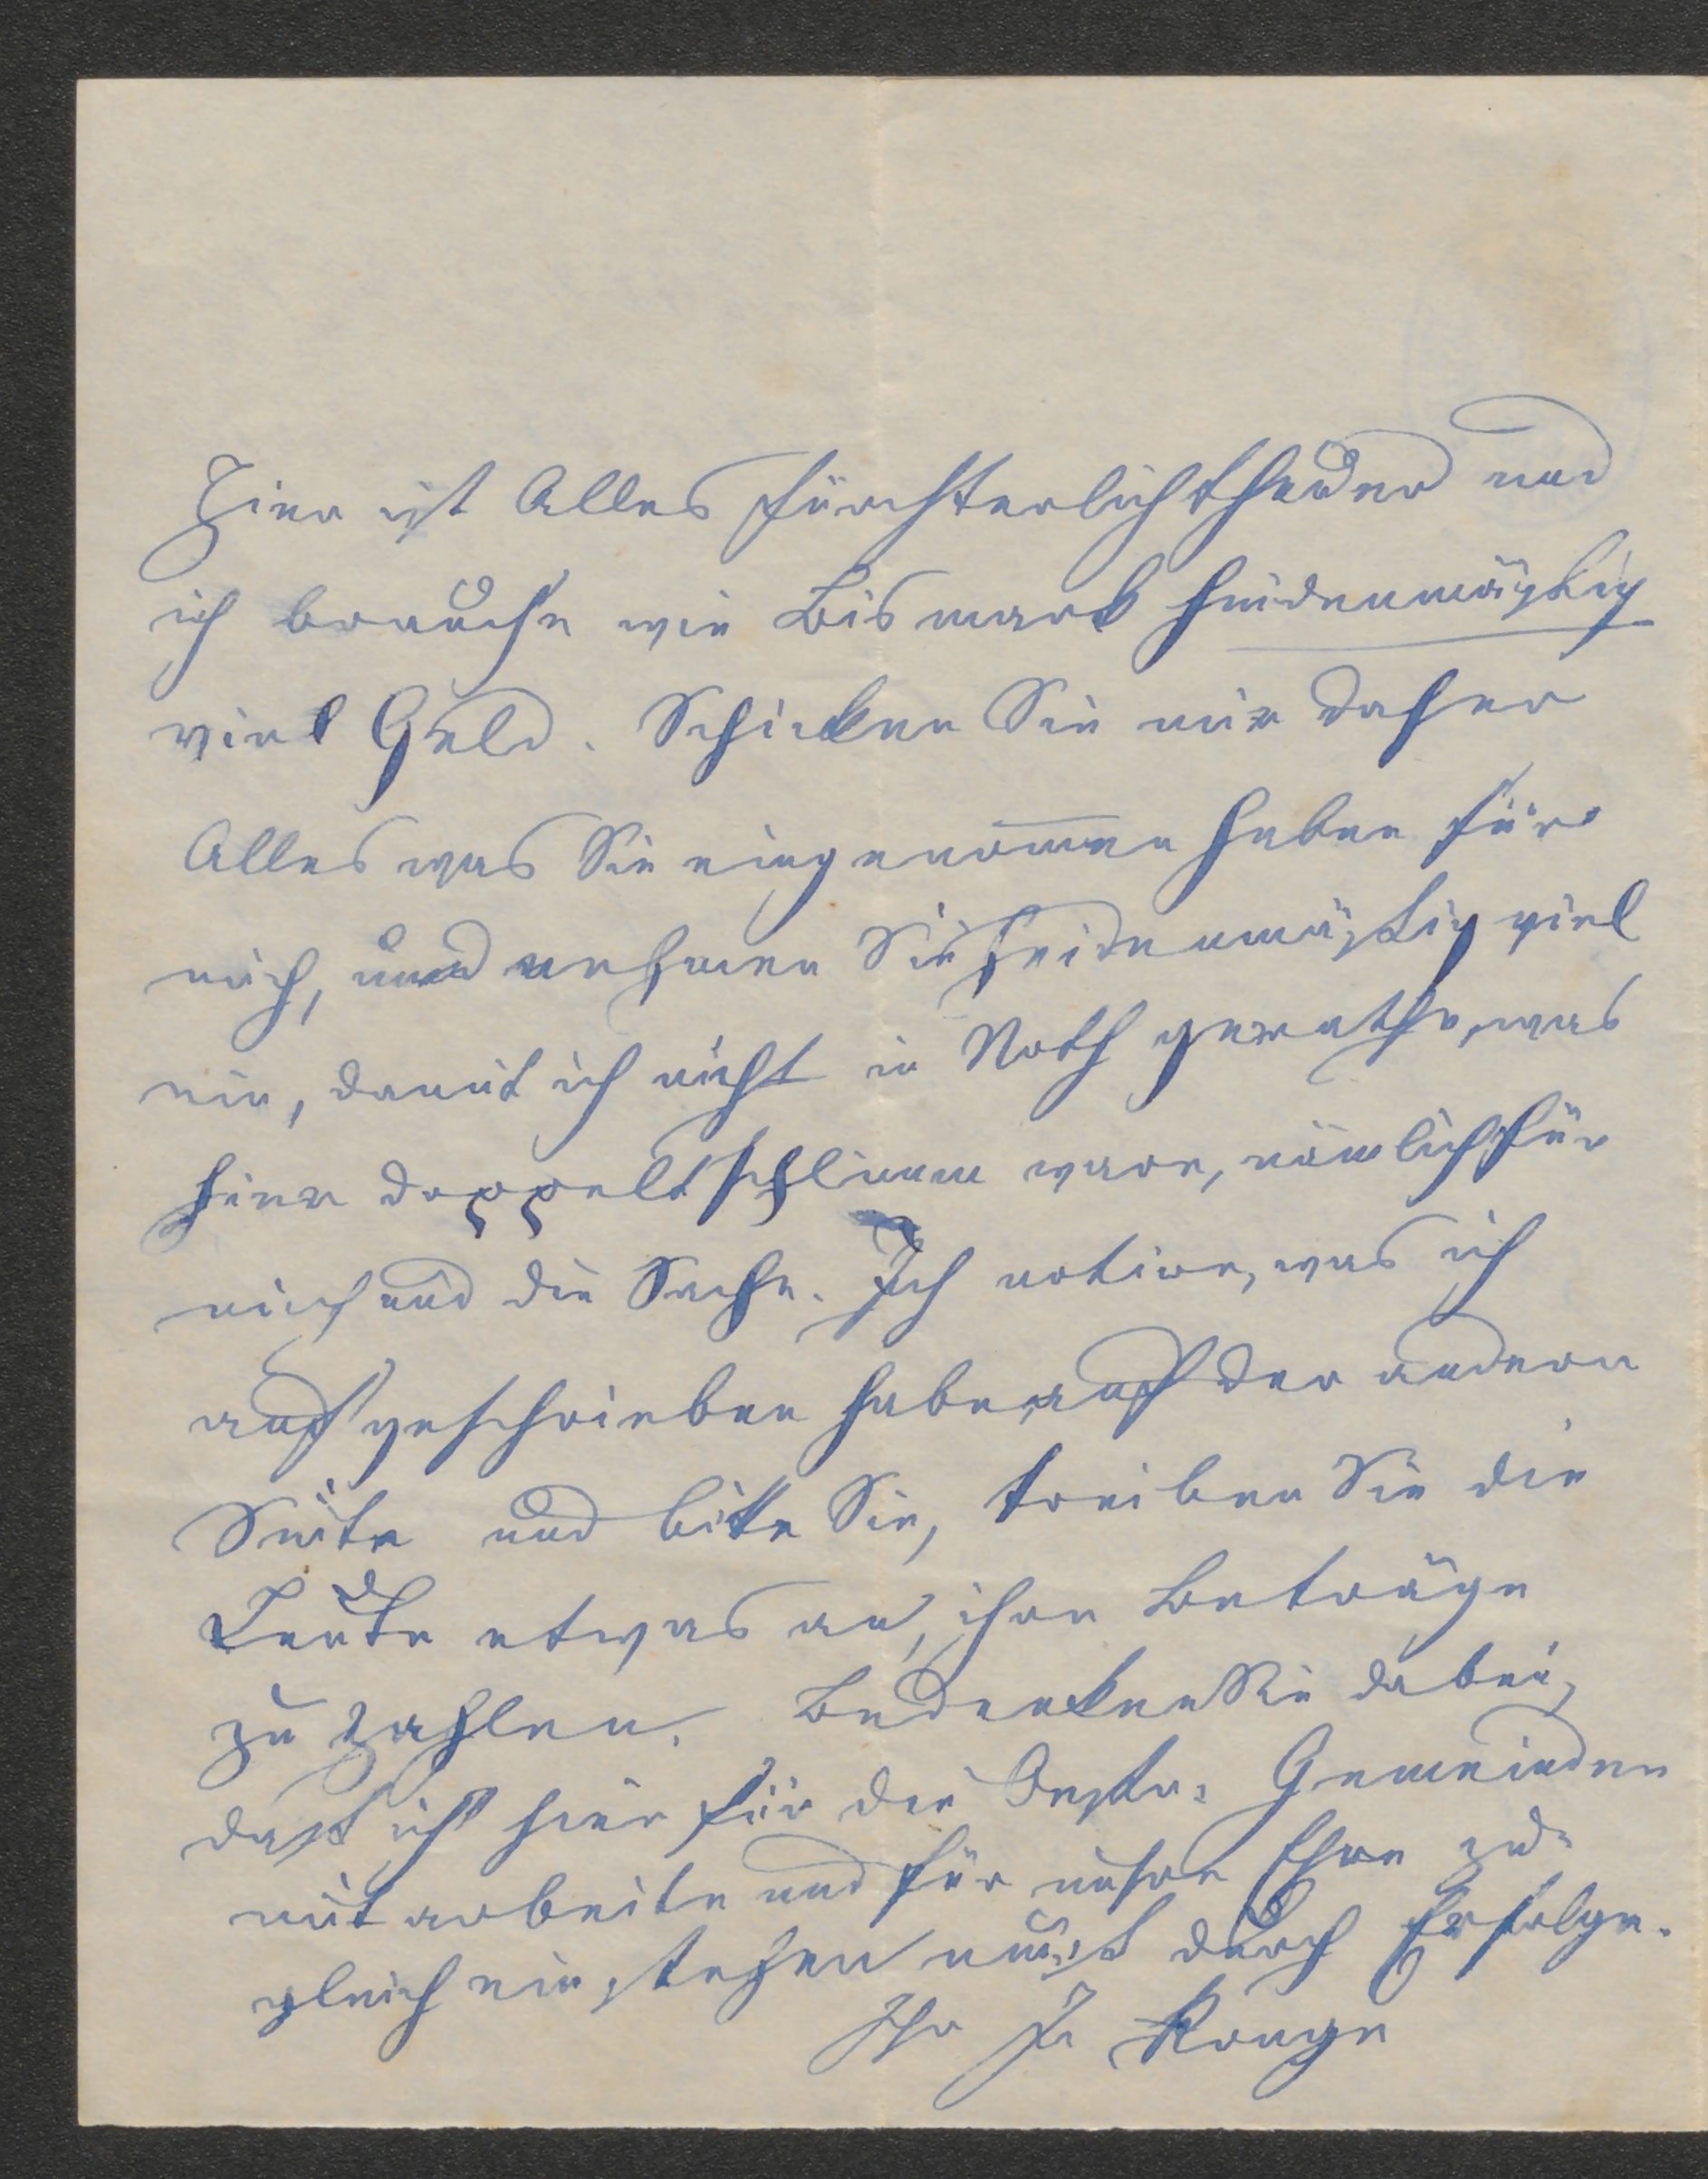 Hier ist Alles fürchterlich theuer und
ich brauche wie Bismark heidenmäßig
viel Geld. Schicken Sie mir daher
Alles was Sie eingenommen haben für
mich, und nehmen Sie heidenmäßig viel
ein, damit ich nicht in Noth gerathe, was
hier doppelt schlimm wäre, nämlich für
mich und die Sache. Ich notire, was ich
aufgeschrieben habe, auf der andern
Seite und bitte Sie, treiben Sie die
Leute etwas an, ihre Beträge
zu zahlen. Bedenken Sie dabei,
daß ich hier für die Gemeinden
mit arbeite und für unsre Ehre zu-
gleich einstehen muß durch Erfolge.
Ihr J. Ronge